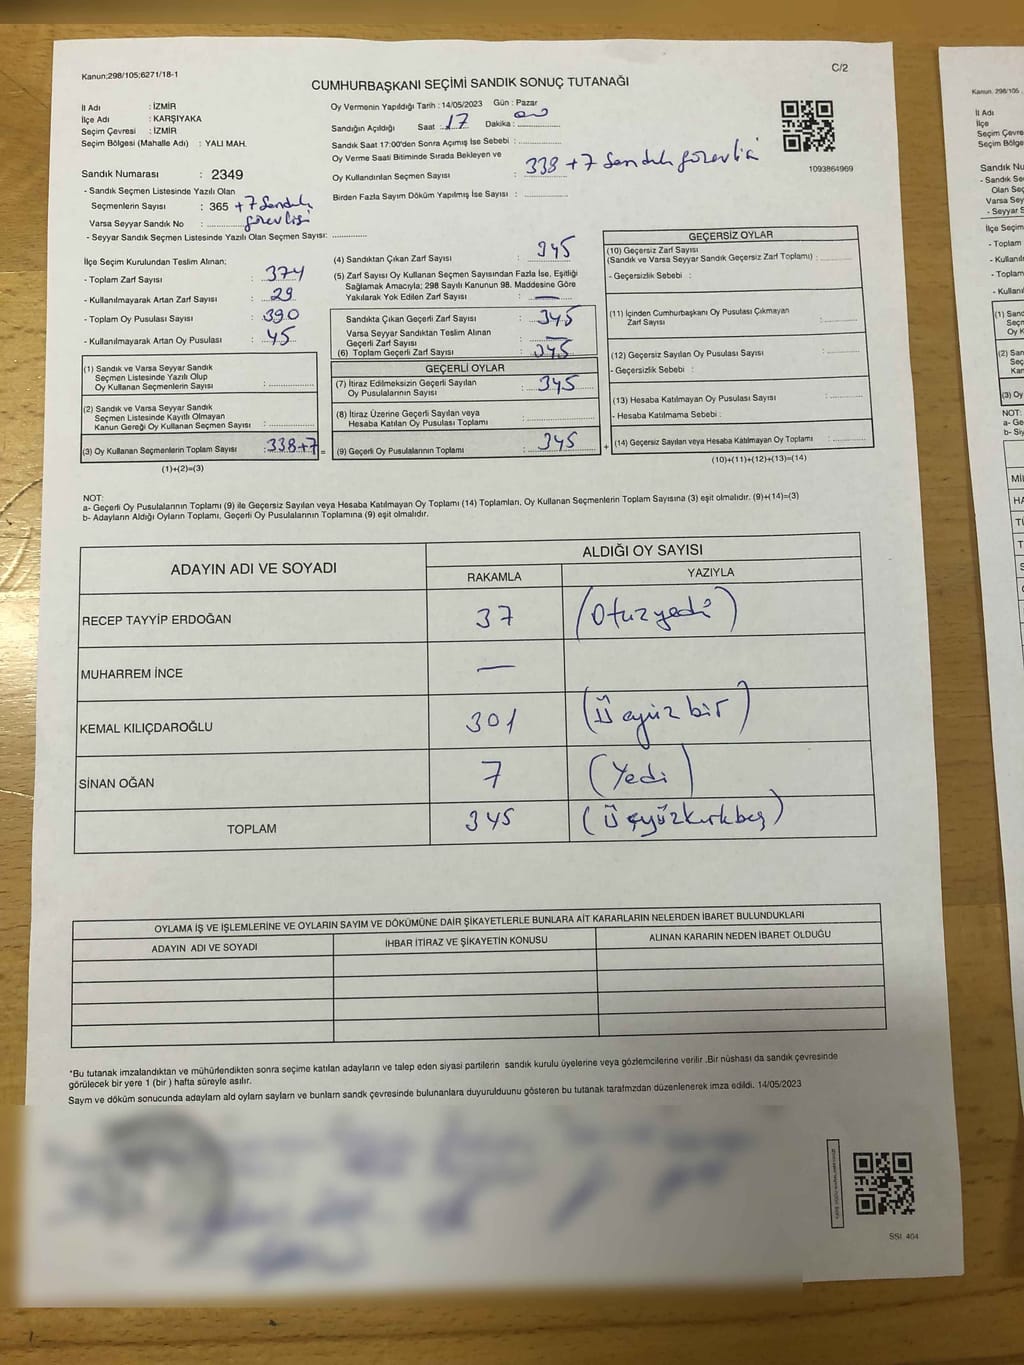 Kanun;298/105;6271/18-1
C/2
CUMHURBAŞKANI SEÇİMİ SANDIK SONUÇ TUTANAĞI
İl Adı : İZMİR
İlçe Adı : KARŞIYAKA
Seçim Çevresi : İZMİR
Seçim Bölgesi (Mahalle Adı) : YALI MAH.
Sandık Numarası : 2349
- Sandık Seçmen Listesinde Yazılı Olan
Seçmenlerin Sayısı : 365 +7 Sandık
görevlisi
Varsa Seyyar Sandık No :
- Seyyar Sandık Seçmen Listesinde Yazılı Olan Seçmen Sayısı:
Oy Vermenin Yapıldığı Tarih : 14/05/2023 Gün : Pazar
Sandığın Açıldığı Saat : 17 Dakika : 00
Sandık Saat 17:00'den Sonra Açımış İse Sebebi :
Oy Verme Saati Bitiminde Sırada Bekleyen ve
Oy Kullandırılan Seçmen Sayısı : 338 +7 Sandık görevlisi
Birden Fazla Sayım Döküm Yapılmış İse Sayısı :
1093864969
İlçe Seçim Kurulundan Teslim Alınan;
- Toplam Zarf Sayısı : 374
- Kullanılmayarak Artan Zarf Sayısı : 29
- Toplam Oy Pusulası Sayısı : 390
- Kullanılmayarak Artan Oy Pusulası : 45
(1) Sandık ve Varsa Seyyar Sandık
Seçmen Listesinde Yazılı Olup
Oy Kullanan Seçmenlerin Sayısı :
(2) Sandık ve Varsa Seyyar Sandık
Seçmen Listesinde Kayıtlı Olmayan
Kanun Gereği Oy Kullanan Seçmen Sayısı :
(3) Oy Kullanan Seçmenlerin Toplam Sayısı : 338+7 =
(1)+(2)=(3)
(4) Sandıktan Çıkan Zarf Sayısı : 345
(5) Zarf Sayısı Oy Kullanan Seçmen Sayısından Fazla İse, Eşitliği
Sağlamak Amacıyla; 298 Sayılı Kanunun 98. Maddesine Göre
Yakılarak Yok Edilen Zarf Sayısı : —
Sandıkta Çıkan Geçerli Zarf Sayısı : 345
Varsa Seyyar Sandıktan Teslim Alınan
Geçerli Zarf Sayısı : —
(6) Toplam Geçerli Zarf Sayısı : 345
GEÇERLİ OYLAR
(7) İtiraz Edilmeksizin Geçerli Sayılan
Oy Pusulalarının Sayısı : 345
(8) İtiraz Üzerine Geçerli Sayılan veya
Hesaba Katılan Oy Pusulası Toplamı :
(9) Geçerli Oy Pusulalarının Toplamı : 345 +
GEÇERSİZ OYLAR
(10) Geçersiz Zarf Sayısı
(Sandık ve Varsa Seyyar Sandık Geçersiz Zarf Toplamı) :
- Geçersizlik Sebebi :
(11) İçinden Cumhurbaşkanı Oy Pusulası Çıkmayan
Zarf Sayısı :
(12) Geçersiz Sayılan Oy Pusulası Sayısı :
- Geçersizlik Sebebi :
(13) Hesaba Katılmayan Oy Pusulası Sayısı :
- Hesaba Katılmama Sebebi :
(14) Geçersiz Sayılan veya Hesaba Katılmayan Oy Toplamı :
(10)+(11)+(12)+(13)=(14)
NOT:
a- Geçerli Oy Pusulalarının Toplamı (9) ile Geçersiz Sayılan veya Hesaba Katılmayan Oy Toplamı (14) Toplamları, Oy Kullanan Seçmenlerin Toplam Sayısına (3) eşit olmalıdır. (9)+(14)=(3)
b- Adayların Aldığı Oyların Toplamı, Geçerli Oy Pusulalarının Toplamına (9) eşit olmalıdır.
ADAYIN ADI VE SOYADI
ALDIĞI OY SAYISI
RAKAMLA YAZIYLA
RECEP TAYYİP ERDOĞAN 37 (Otuzyedi)
MUHARREM İNCE —
KEMAL KILIÇDAROĞLU 301 (Üçyüzbir)
SİNAN OĞAN 7 (Yedi)
TOPLAM 345 (Üçyüzkırkbeş)
OYLAMA İŞ VE İŞLEMLERİNE VE OYLARIN SAYIM VE DÖKÜMÜNE DAİR ŞİKAYETLERLE BUNLARA AİT KARARLARIN NELERDEN İBARET BULUNDUKLARI
ADAYIN ADI VE SOYADI İHBAR İTİRAZ VE ŞİKAYETİN KONUSU ALINAN KARARIN NEDEN İBARET OLDUĞU
*Bu tutanak imzalandıktan ve mühürlendikten sonra seçime katılan adayların ve talep eden siyasi partilerin sandık kurulu üyelerine veya gözlemcilerine verilir .Bir nüshası da sandık çevresinde
görülecek bir yere 1 (bir ) hafta süreyle asılır.
Sayım ve döküm sonucunda adaylam ald oylarn saylarn ve bunlarn sandk çevresinde bulunanlara duyurulduunu gösteren bu tutanak tarafmzdan düzenlenerek imza edildi. 14/05/2023
SSI. 404
Kanun. 298/105
İl Adı
İlçe
Seçim Çevre
Seçim Bölge
Sandık Nu